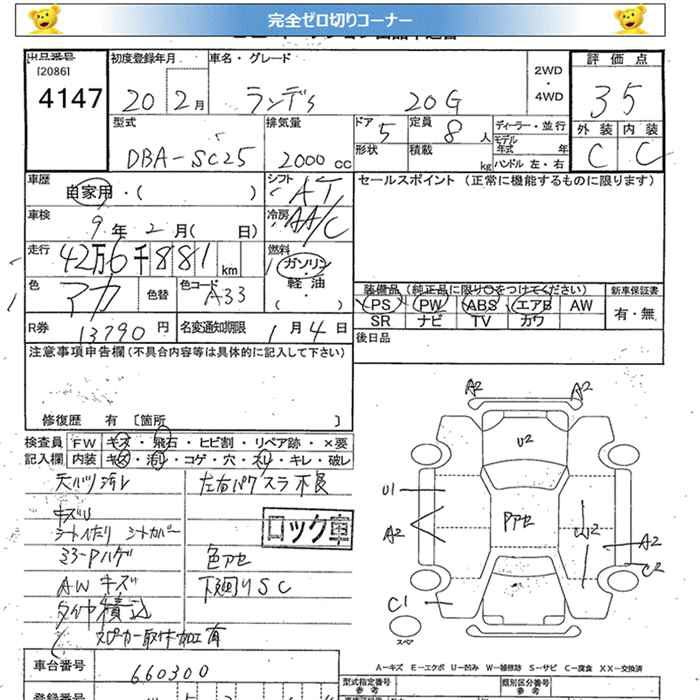 完全ゼロ切りコーナー
出品番号 初度登録年月 車名・グレード 2WD ・ 4WD 評価点
[2086]
4147 20 2月 ランディ 20G 35
型式 排気量 ドア 5 定員 8人 ディーラー・並行 外装 内装
DBA-SC25 2000cc 形状 積載 kg モデル年式 年 ハンドル 左・右 C C
車歴 自家用・( ) シフト AT セールスポイント (正常に機能するものに限ります)
車検 9年2月( 日) 冷房 AA/C
走行 42万6千881km 燃料 ガソリン・軽油・( )
色 アカ 色替 色コード A33 装備品(純正品に限り○をつけてください) 新車保証書
PS PW ABS エアB AW 有・無
R券 13790円 名変通知期限 1月4日 SR ナビ TV カワ
注意事項申告欄(不具合内容等は具体的に記入して下さい) 後日品
修復歴 有 [箇所 ]
検査員 FW キズ・飛石・ヒビ割・リペア跡・×要
記入欄 内装 キズ・汚レ・コゲ・穴・スレ・キレ・破レ
天バリ汚レ 左右パワスラ不良
キズ
シートヘタリ シートカバー ロック車
ミラーハゲ 色アセ
AWキズ 下廻りSC
タイヤ積込
スピーカー取付加工有
A2 A2
U2
U1 Pアセ W2
A2 A2
C2
C1
スペア
A-キズ E-エクボ U-凹み W-補修跡 S-サビ C-腐食 XX-交換済
車台番号 660300 型式指定番号 参考 類別区分番号 参考
登録番号